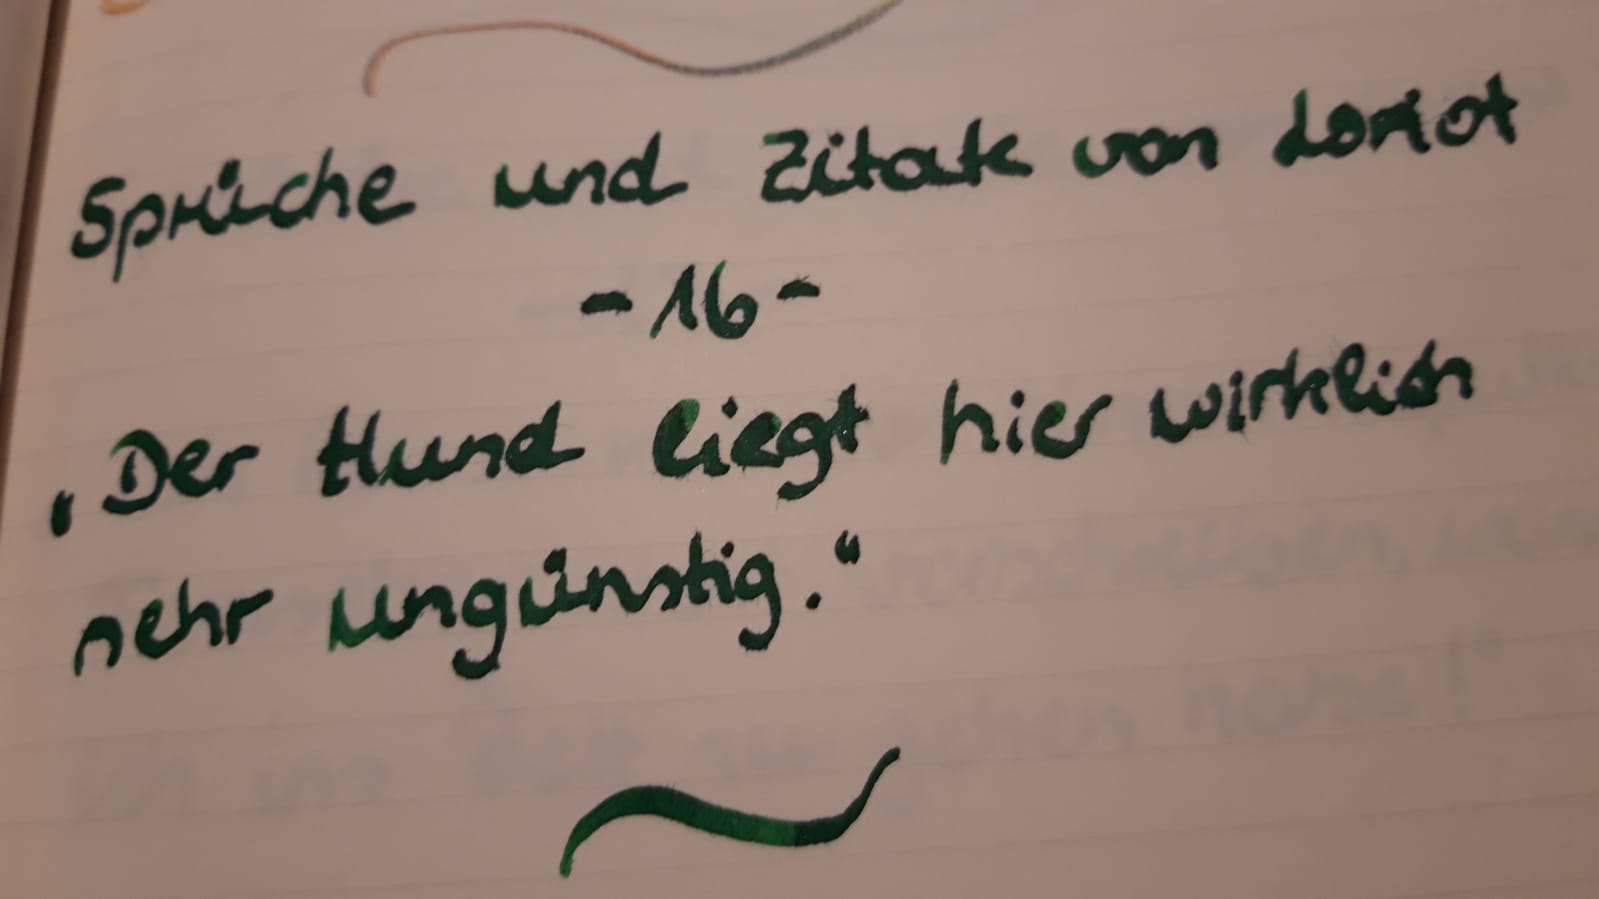 Sprüche und Zitate von Loriot
- 16 -
„Der Hund liegt hier wirklich
nehr ungünstig.“